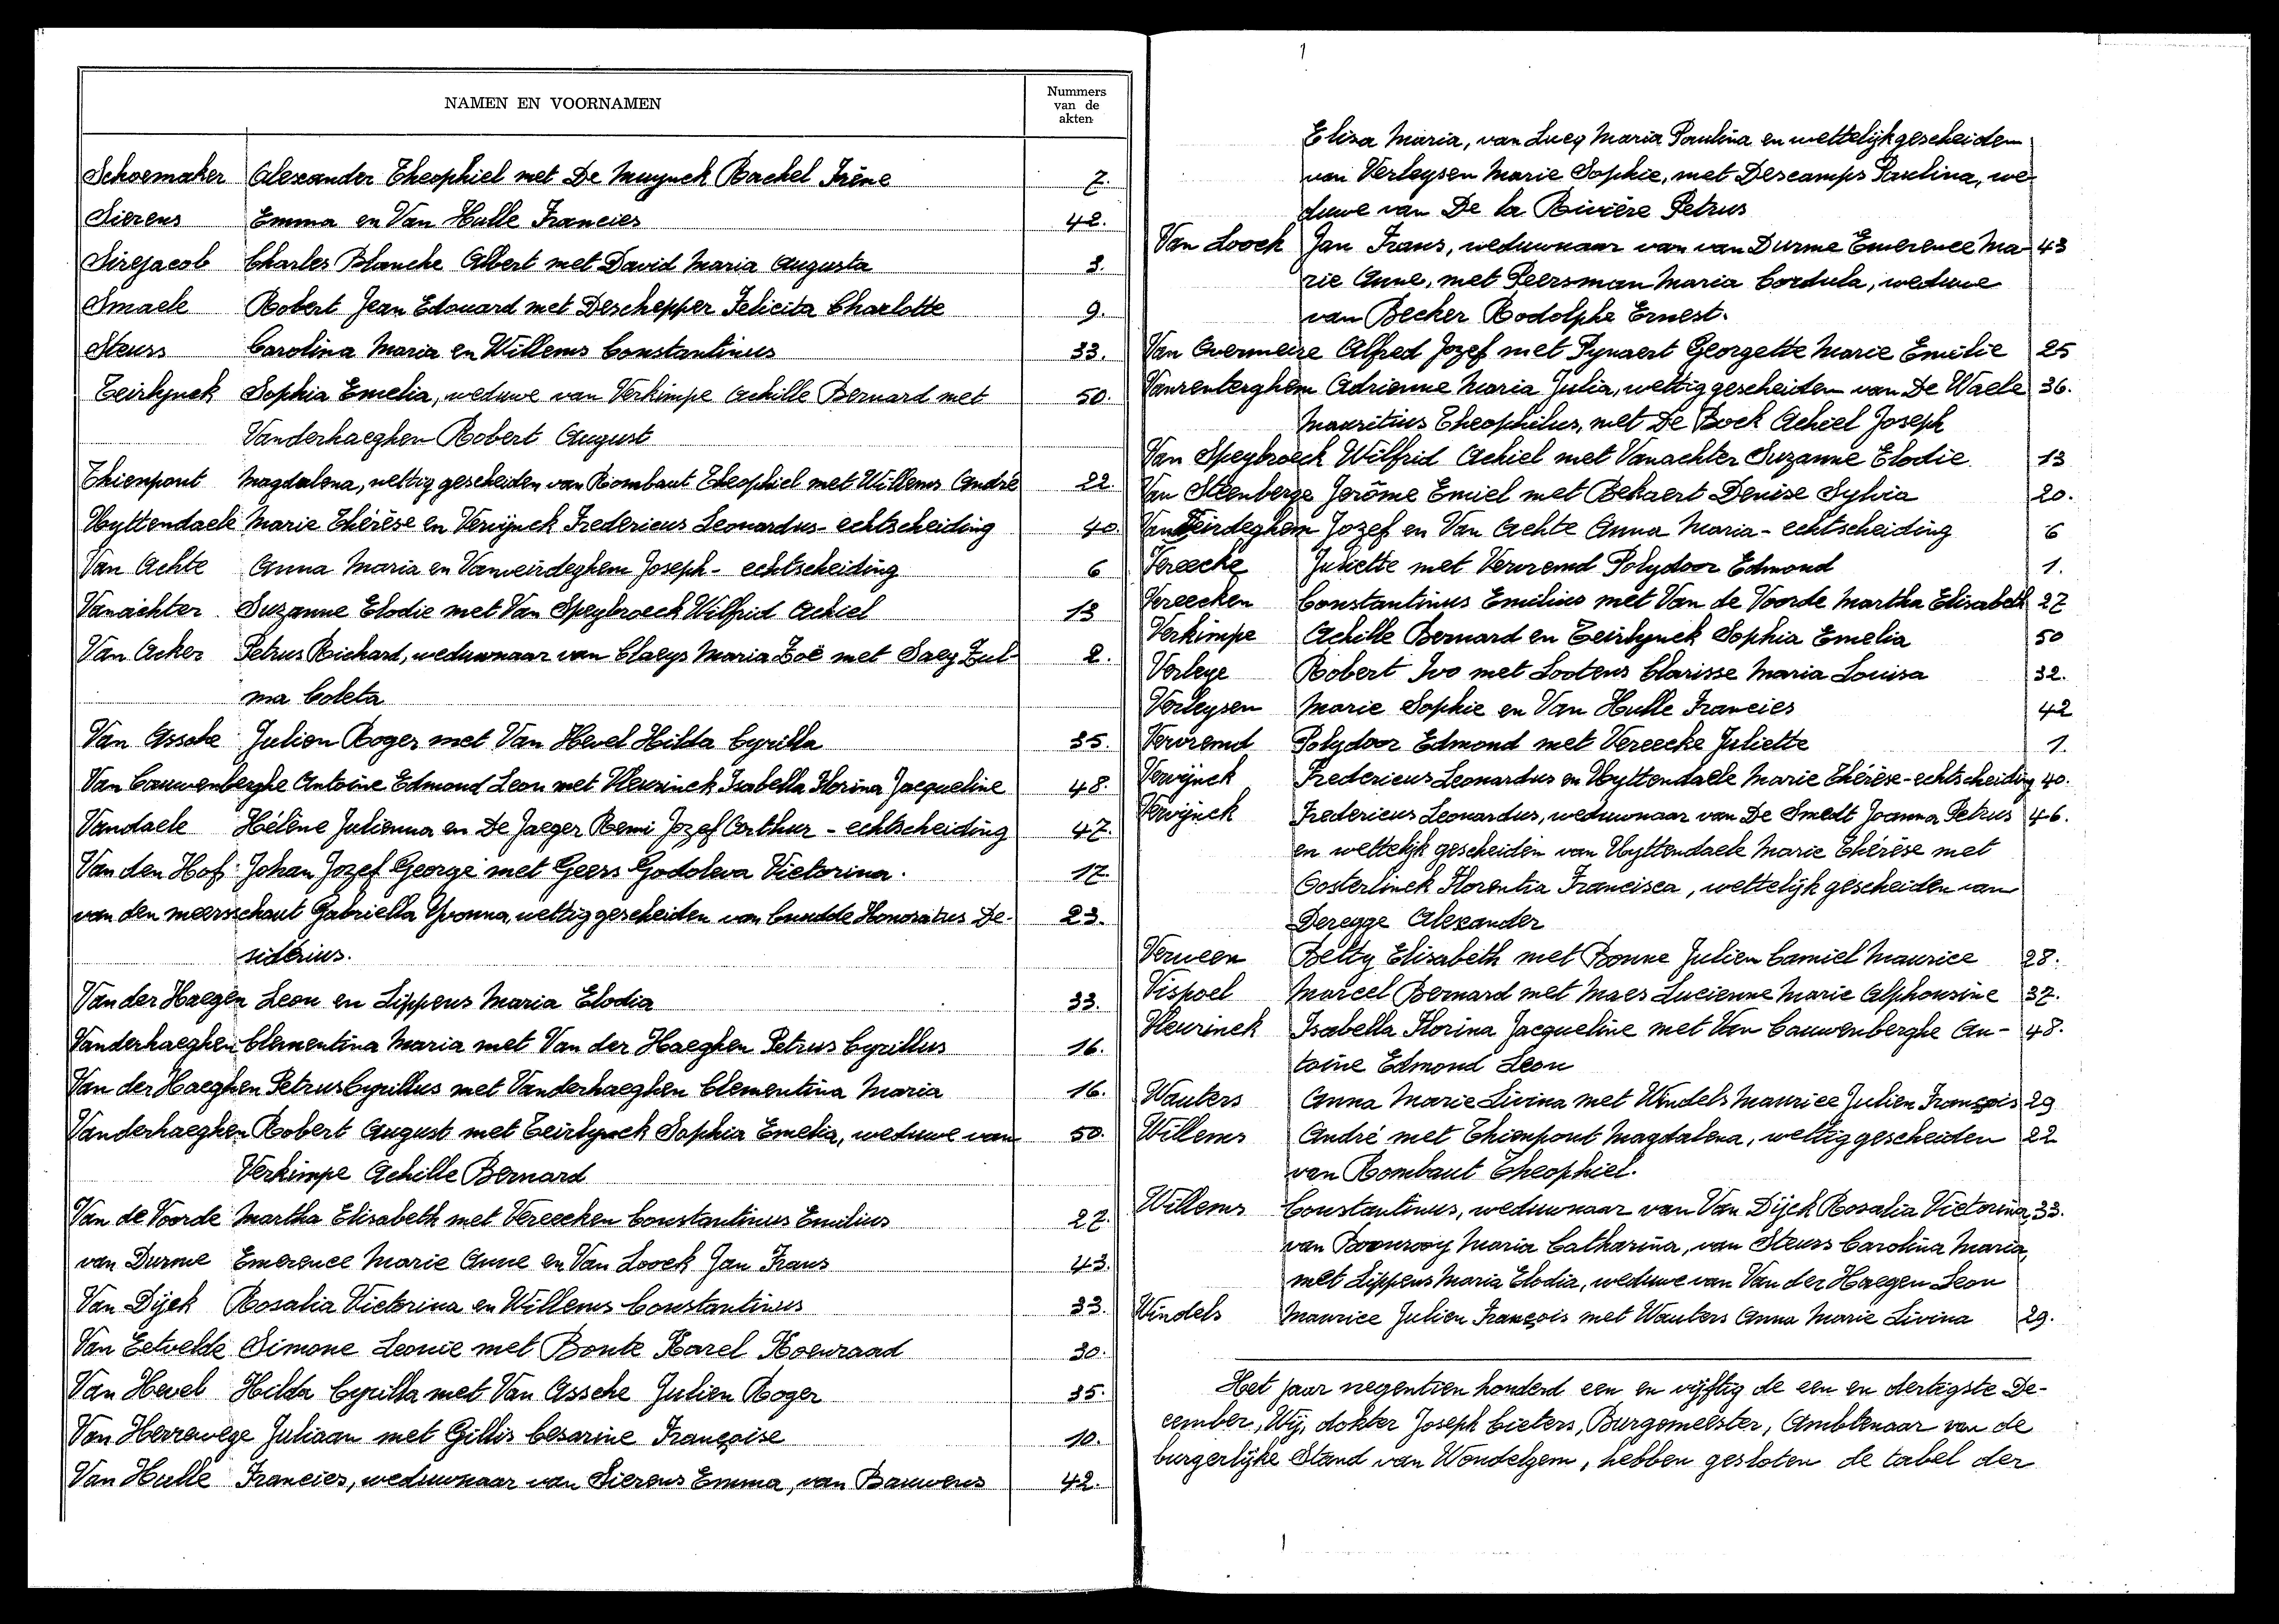 NAMEN EN VOORNAMEN
Nummers
van de
akten
Schoemaker Alexander Theophiel met De Muynck Rachel Irêne 7.
Sierens Emma en Van Hulle Francies 42.
Sirejacob Charles Blanche Albert met David Maria Augusta 3.
Smaele Robert Jean Edouard met Deschepper Felicita Charlotte 9.
Steurs Carolina Maria en Willems Constantinus 33.
Teirlynck Sophia Emelia, weduwe van Verkimpe Achille Bernard met 50.
Vanderhaeghen Robert August
Thienpont Magdalena, wettig gescheiden van Rombaut Theophiel met Willems André 22.
Uyttendaele Marie Thérèse en Verwijnck Fredericus Leonardus - echtscheiding 40.
Van Achte Anna Maria en Vanveirdeghem Joseph - echtscheiding 6
Vanachter Suzanne Elodie met Van Speybroeck Wilfrid Achiel 13
Van Acker Petrus Richard, weduwnaar van Claeys Maria Zoë met Saey Zul- 2.
ma Coleta
Van Assche Julien Roger met Van Hevel Hilda Cyrilla 35.
Van Cauwenberghe Antoine Edmond Leon met Vleurinck Isabella Florina Jacqueline 48.
Vandaele Hélène Julienna en De Jaeger Remi Jozef Arthur - echtscheiding 47.
Van den Hof Johan Jozef George met Geers Godoleva Victorina. 17.
van den meersschaut Gabriella Yvonna, wettig gescheiden van Cnudde Honoratus De- 23.
siderius.
Van der Haegen Leon en Lippens Maria Elodia 33.
Vanderhaeghen Clementina Maria met Van der Haeghen Petrus Cyrillus 16.
Van der Haeghen Petrus Cyrillus met Vanderhaeghen Clementina Maria 16.
Vanderhaeghen Robert August met Teirlynck Sophia Emelia, weduwe van 50.
Verkimpe Achille Bernard
Van de Voorde Martha Elisabeth met Vereecken Constantinus Emilius 27.
van Durme Emerence Marie Anne en Van Loock Jan Frans 43.
Van Dijck Rosalia Victorina en Willems Constantinus 33.
Van Eetvelde Simone Leonie met Bonte Karel Koenraad 30.
Van Hevel Hilda Cyrilla met Van Assche Julien Roger 35.
Van Herrewege Juliaan met Gillis Cesarine Françoise 10.
Van Hulle Francies, weduwnaar van Sierens Emma, van Bauwens 42.
Elisa Maria, van Lucq Maria Paulina en wettelijk gescheiden
van Verleysen Marie Sophie, met Descamps Paulina, we-
duwe van De la Rivière Petrus
Van Loock Jan Frans, weduwnaar van van Durme Emerence Ma- 43
rie Anne, met Peersman Maria Cordula, weduwe
van Becker Rodolphe Ernest.
Van Overmeire Alfred Jozef met Pynaert Georgette Marie Emilie 25
Vanrenterghem Adrienne Maria Julia, wettig gescheiden van De Waele 36.
Mauritius Theophilus, met De Bock Achiel Joseph
Van Speybroeck Wilfrid Achiel met Vanachter Suzanne Elodie 13
Van Steenberge Jerôme Emiel met Bekaert Denise Sylvia 20.
Van Veirdeghem Jozef en Van Achte Anna Maria - echtscheiding 6
Vereecke Juliette met Vervremd Polydoor Edmond 1.
Vereecken Constantinus Emilius met Van de Voorde Martha Elisabeth 27
Verkimpe Achille Bernard en Teirlynck Sophia Emelia 50
Verleye Robert Ivo met Lootens Clarisse Maria Louisa 32.
Verleysen Marie Sophie en Van Hulle Francies 42
Vervremd Polydoor Edmond met Vereecke Juliette 1.
Verwijnck Fredericus Leonardus en Uyttendaele Marie Thérèse - echtscheiding 40.
Verwijnck Fredericus Leonardus, weduwnaar van De Smedt Joanna Petrus 46.
en wettelijk gescheiden van Uyttendaele Marie Thérèse met
Oosterlinck Florentia Francisca, wettelijk gescheiden van
Deregge Alexander
Verween Betty Elisabeth met Bonne Julien Camiel Maurice 28.
Vispoel Marcel Bernard met Maes Lucienne Marie Alphonsine 37.
Vleurinck Isabella Florina Jacqueline met Van Cauwenberghe An- 48.
toine Edmond Leon
Wauters Anna Marie Livina met Windels Maurice Julien François 29
Willems André met Thienpont Magdalena, wettig gescheiden 22
van Rombaut Theophiel.
Willems Constantinus, weduwnaar van Van Dijck Rosalia Victorina, 33.
van Maria Catharina, van Steurs Carolina Maria,
met Lippens Maria Elodia, weduwe van Van der Haegen Leon
Windels Maurice Julien François met Wauters Anna Marie Livina 29.
Het jaar negentien honderd een en vijftig de een en dertigste De-
cember, Wij, dokter Joseph Cieters, Burgemeester, Ambtenaar van de
burgerlijke Stand van Wondelgem, hebben gesloten de tabel der